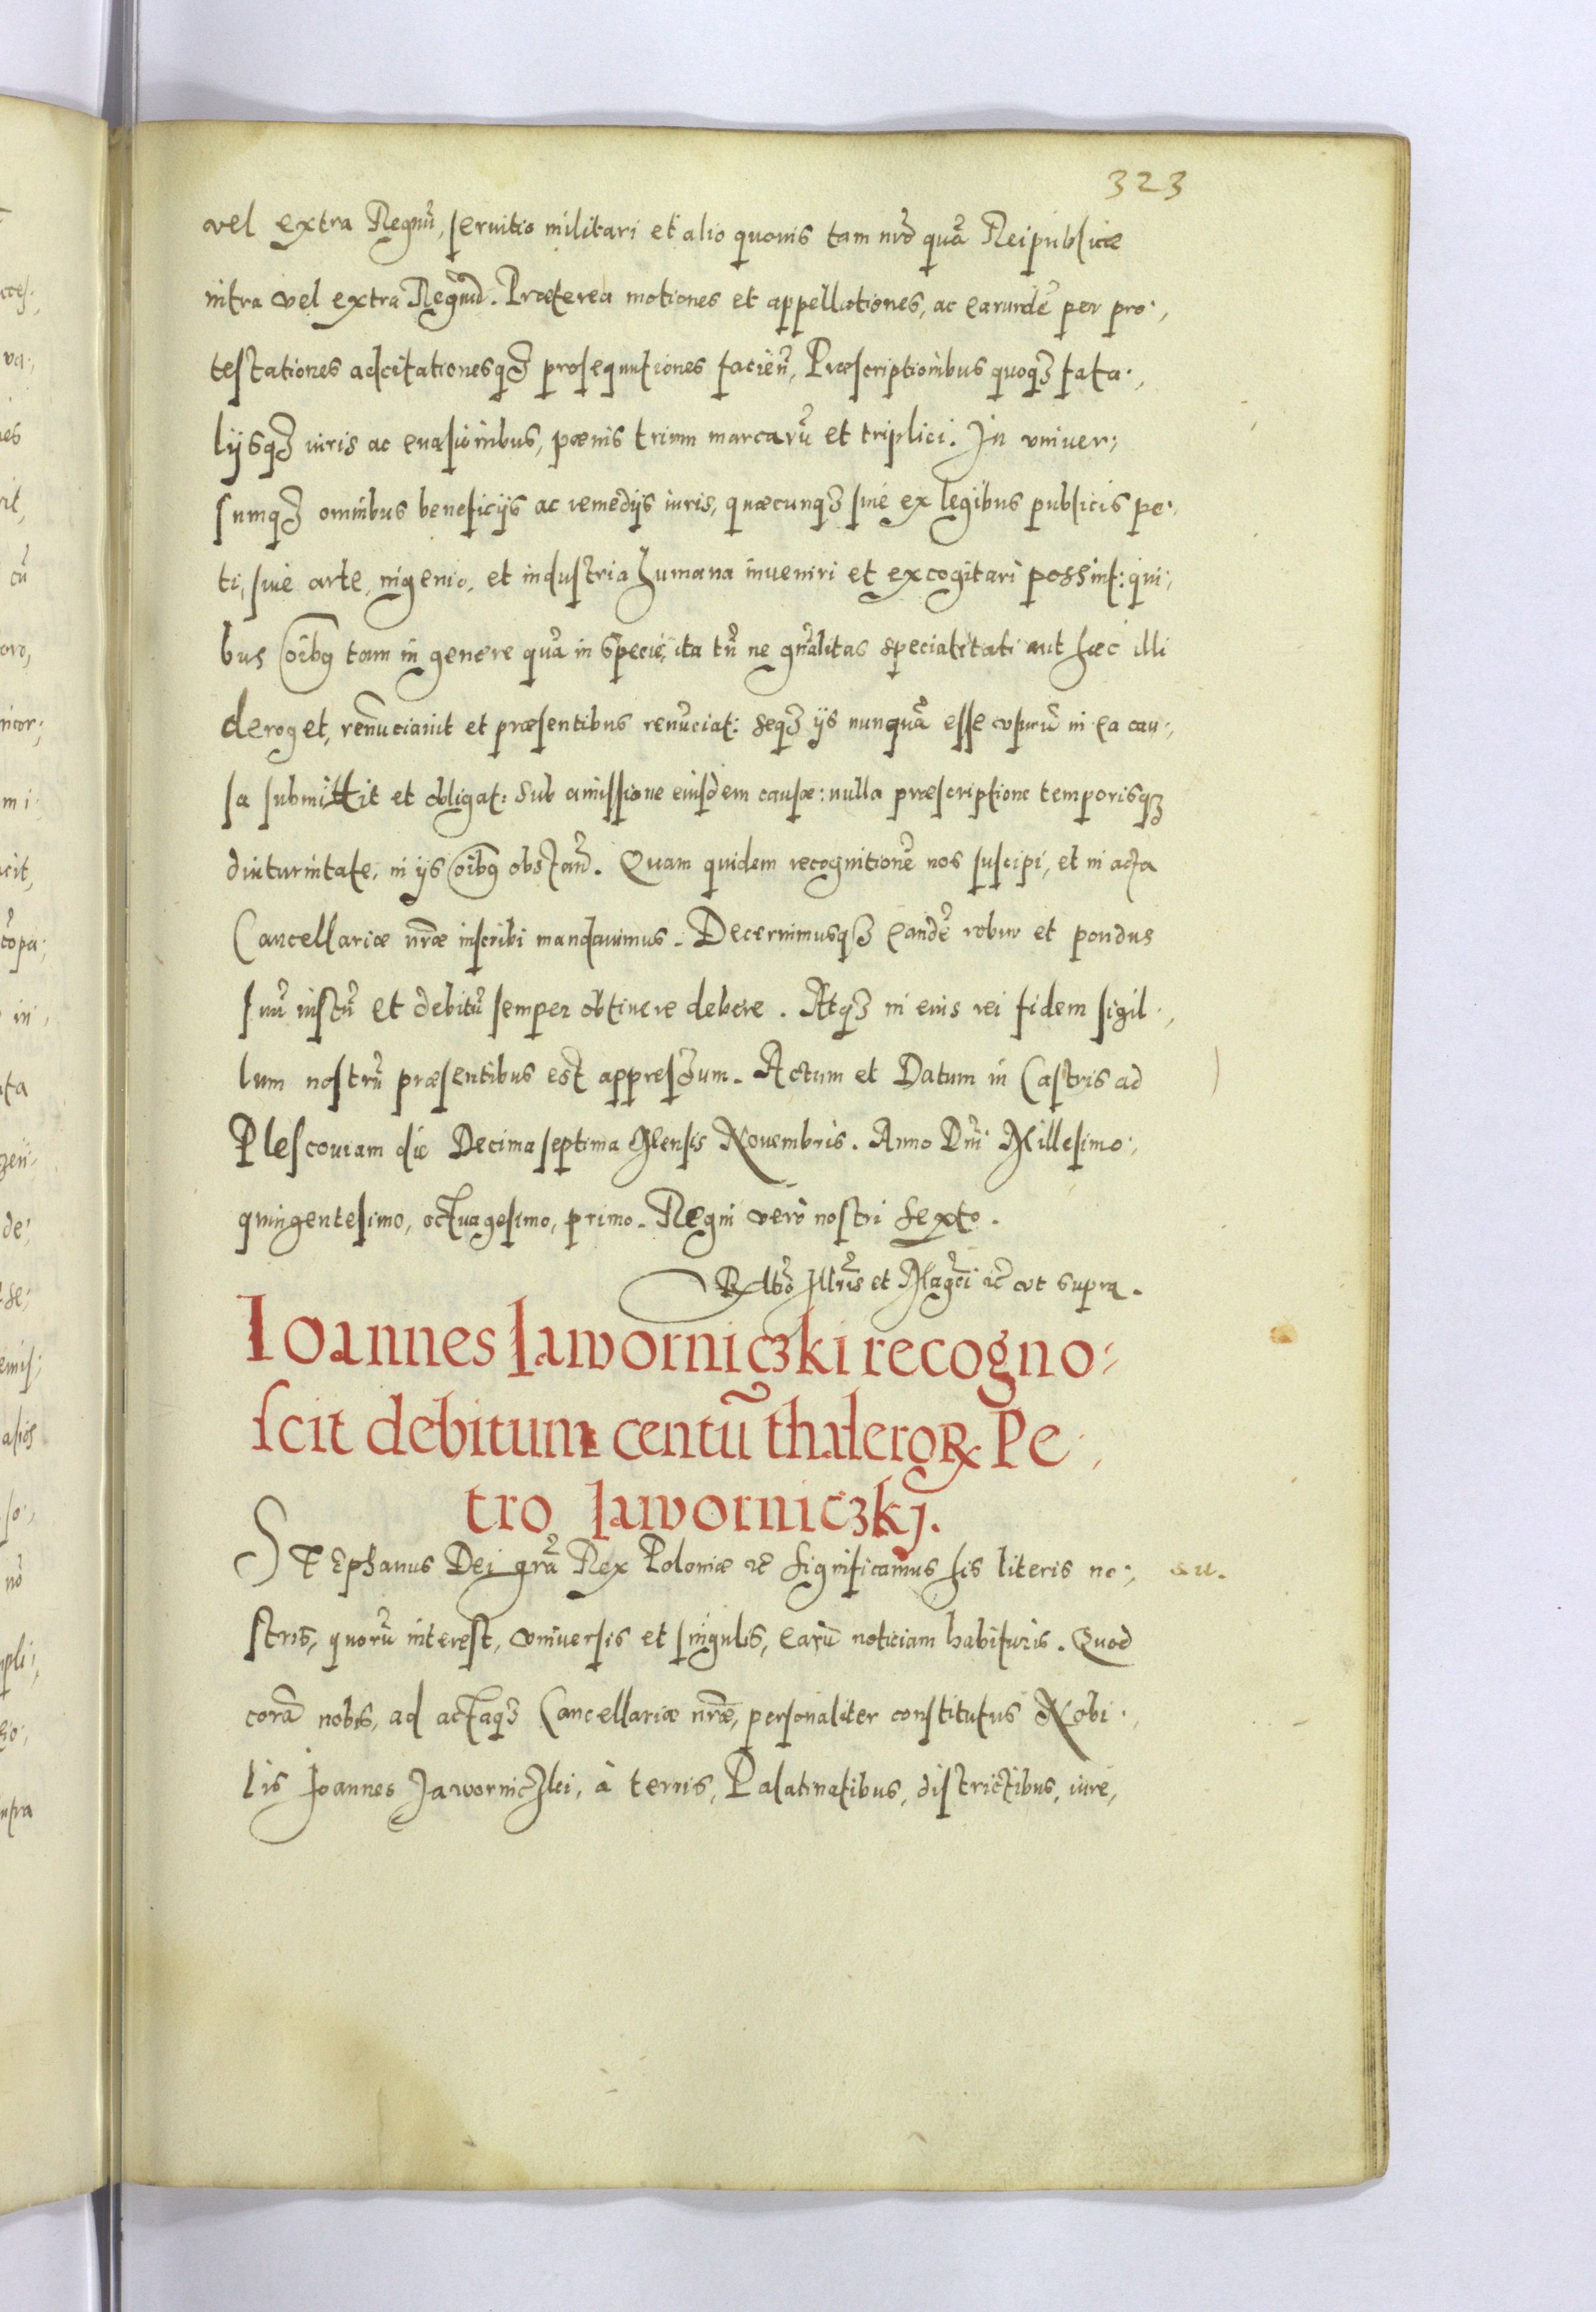 323
vel extra Regnũ, seruitio militari et alio quouis tam nrõ quã Reipublicæ
intra vel extra Regnũ. Præterea motiones et appellationes, ac earundẽ per pro:,
testationes adcitationesqꝫ prosequutiones facień, Præscriptionibus quoqꝫ fata:,
lijsqꝫ iuris ac euasionibus, pœnis trium marcarũ et triplici. In vniuer;
sumqꝫ omnibus beneficijs ac remedijs iuris, quæcunqꝫ siue ex legibus publicis pe:,
ti, siue arte, ingenio, et industria humana inueniri et excogitari possint: qui;
bus oĩbꝗ tam in genere quã in specie, ita tñ ne gñalitas specialitati aut hæc illi
deroget, renũciauit et præsentibus renũciat: seqꝫ ijs nunquã esse vsurũ in ea cau;
sa submittit et obligat: Sub amissione eiusdem causæ: nulla præscriptione temporisqꝫ
diuturnitate, in ijs oĩbꝗ obstań. Quam quidem recognitionẽ nos suscipi, et in acta
Cancellariæ nr̃æ inscribi mandauimus. Decernimusqꝫ eandẽ robur et pondus
suũ iustũ et debitũ semper obtinere debere. Atqꝫ in eius rei fidem sigil:,
lum nostrũ præsentibus est appressum. Actum et Datum in Castris ad
Plescouiam die Decima septima Mensis Nouembris. Anno Dñi Millesimo;
quingentesimo, octuagesimo, primo. Regni verò nostri Sexto.
Rltõ Illr̃is et Mag̃ci ꝛc̃ vt supra.
Ioannes Iaworniczki recogno:
scit debitum centũ thaleroꝝ Pe:,
tro Iaworniczkj.
STEphanus Dei gr̃a Rex Poloniæ ꝛc̃ Significamus his literis no:,
stris, quorũ interest, vniuersis et singulis, earũ noticiam habituris. Quod
corã nobis, ad actaqꝫ Cancellariæ nr̃æ, personaliter constitutus Nobi:,
lis Joannes Jaworniczki, à terris, Palatinatibus, districtibus, iure,